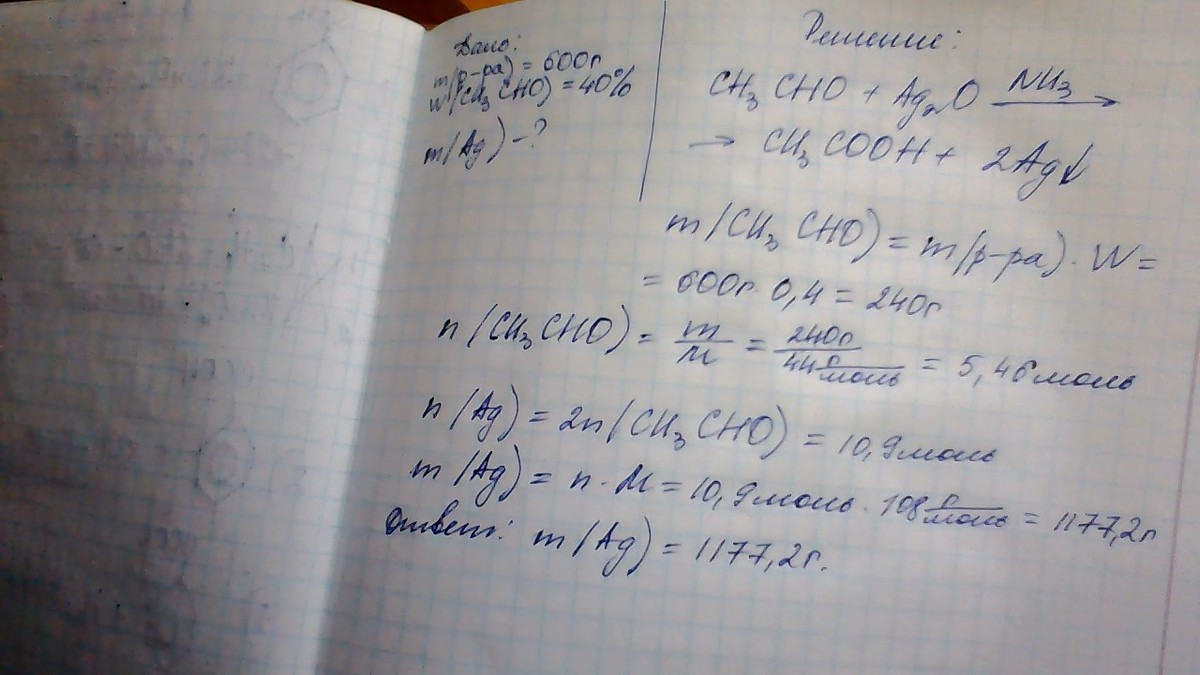 Дано:
m(р-ра) = 600г
W(CH₃CHO) = 40%
m(Ag) - ?
Решение:
CH₃CHO + Ag₂O NH₃ →
→ CH₃COOH + 2Ag↓
m(CH₃CHO) = m(р-ра) · W =
= 600г · 0,4 = 240г
n(CH₃CHO) = m/M = 240г / 44 г/моль = 5,46 моль
n(Ag) = 2n(CH₃CHO) = 10,9 моль
m(Ag) = n · M = 10,9 моль · 108 г/моль = 1177,2г
Ответ: m(Ag) = 1177,2г.